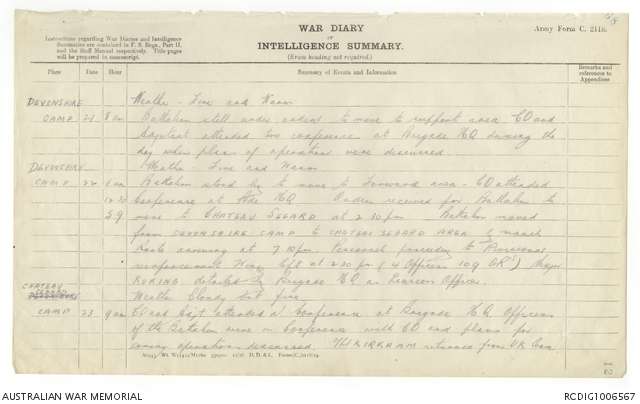 WAR DIARY
or
INTELLIGENCE SUMMARY.
(Erase heading not required.)
Army Form C. 2118.
Instructions regarding War Diaries and Intelligence
Summaries are contained in F. S. Regs., Part II.
and the Staff Manual respectively. Title pages
will be prepared in manuscript.
Place Date Hour Summary of Events and Information Remarks and references to Appendices
DEVONSHIRE Weather - Fine and Warm
CAMP 21 8 am Battalion still under orders to move to support area CO and
Adjutant attended two conferences at Brigade HQ during the
day when plans of operation were discussed
DEVONSHIRE Weather - Fine and Warm
CAMP 22 Battalion stood by to move to Forward area - CO attended
Conference at HQ Orders received for Battalion to
move to CHATEAU SEGARD at 2.30 pm Battalion moved
from DEVONSHIRE CAMP to CHATEAU SEGARD AREA by march
Route arriving at 7.10 pm. Personnel proceeding to Divisional
reinforcement Wing left at 2.30 pm (4 Officers 109 OR's) Major
detailed by Brigade HQ as Liaison Officer.
CHATEAU SEGARD Weather Cloudy but fine
CAMP 23 9 am CO and Adjt attended a Conference at Brigade HQ Officers
of the Battalion were in Conference with CO and plans for
coming operations discussed. KIRKHAM returned from UK
AUSTRALIAN WAR MEMORIAL
RCDIG1006567